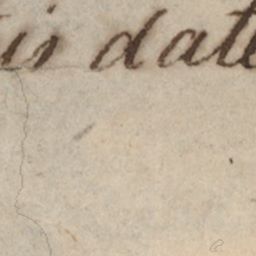 is date